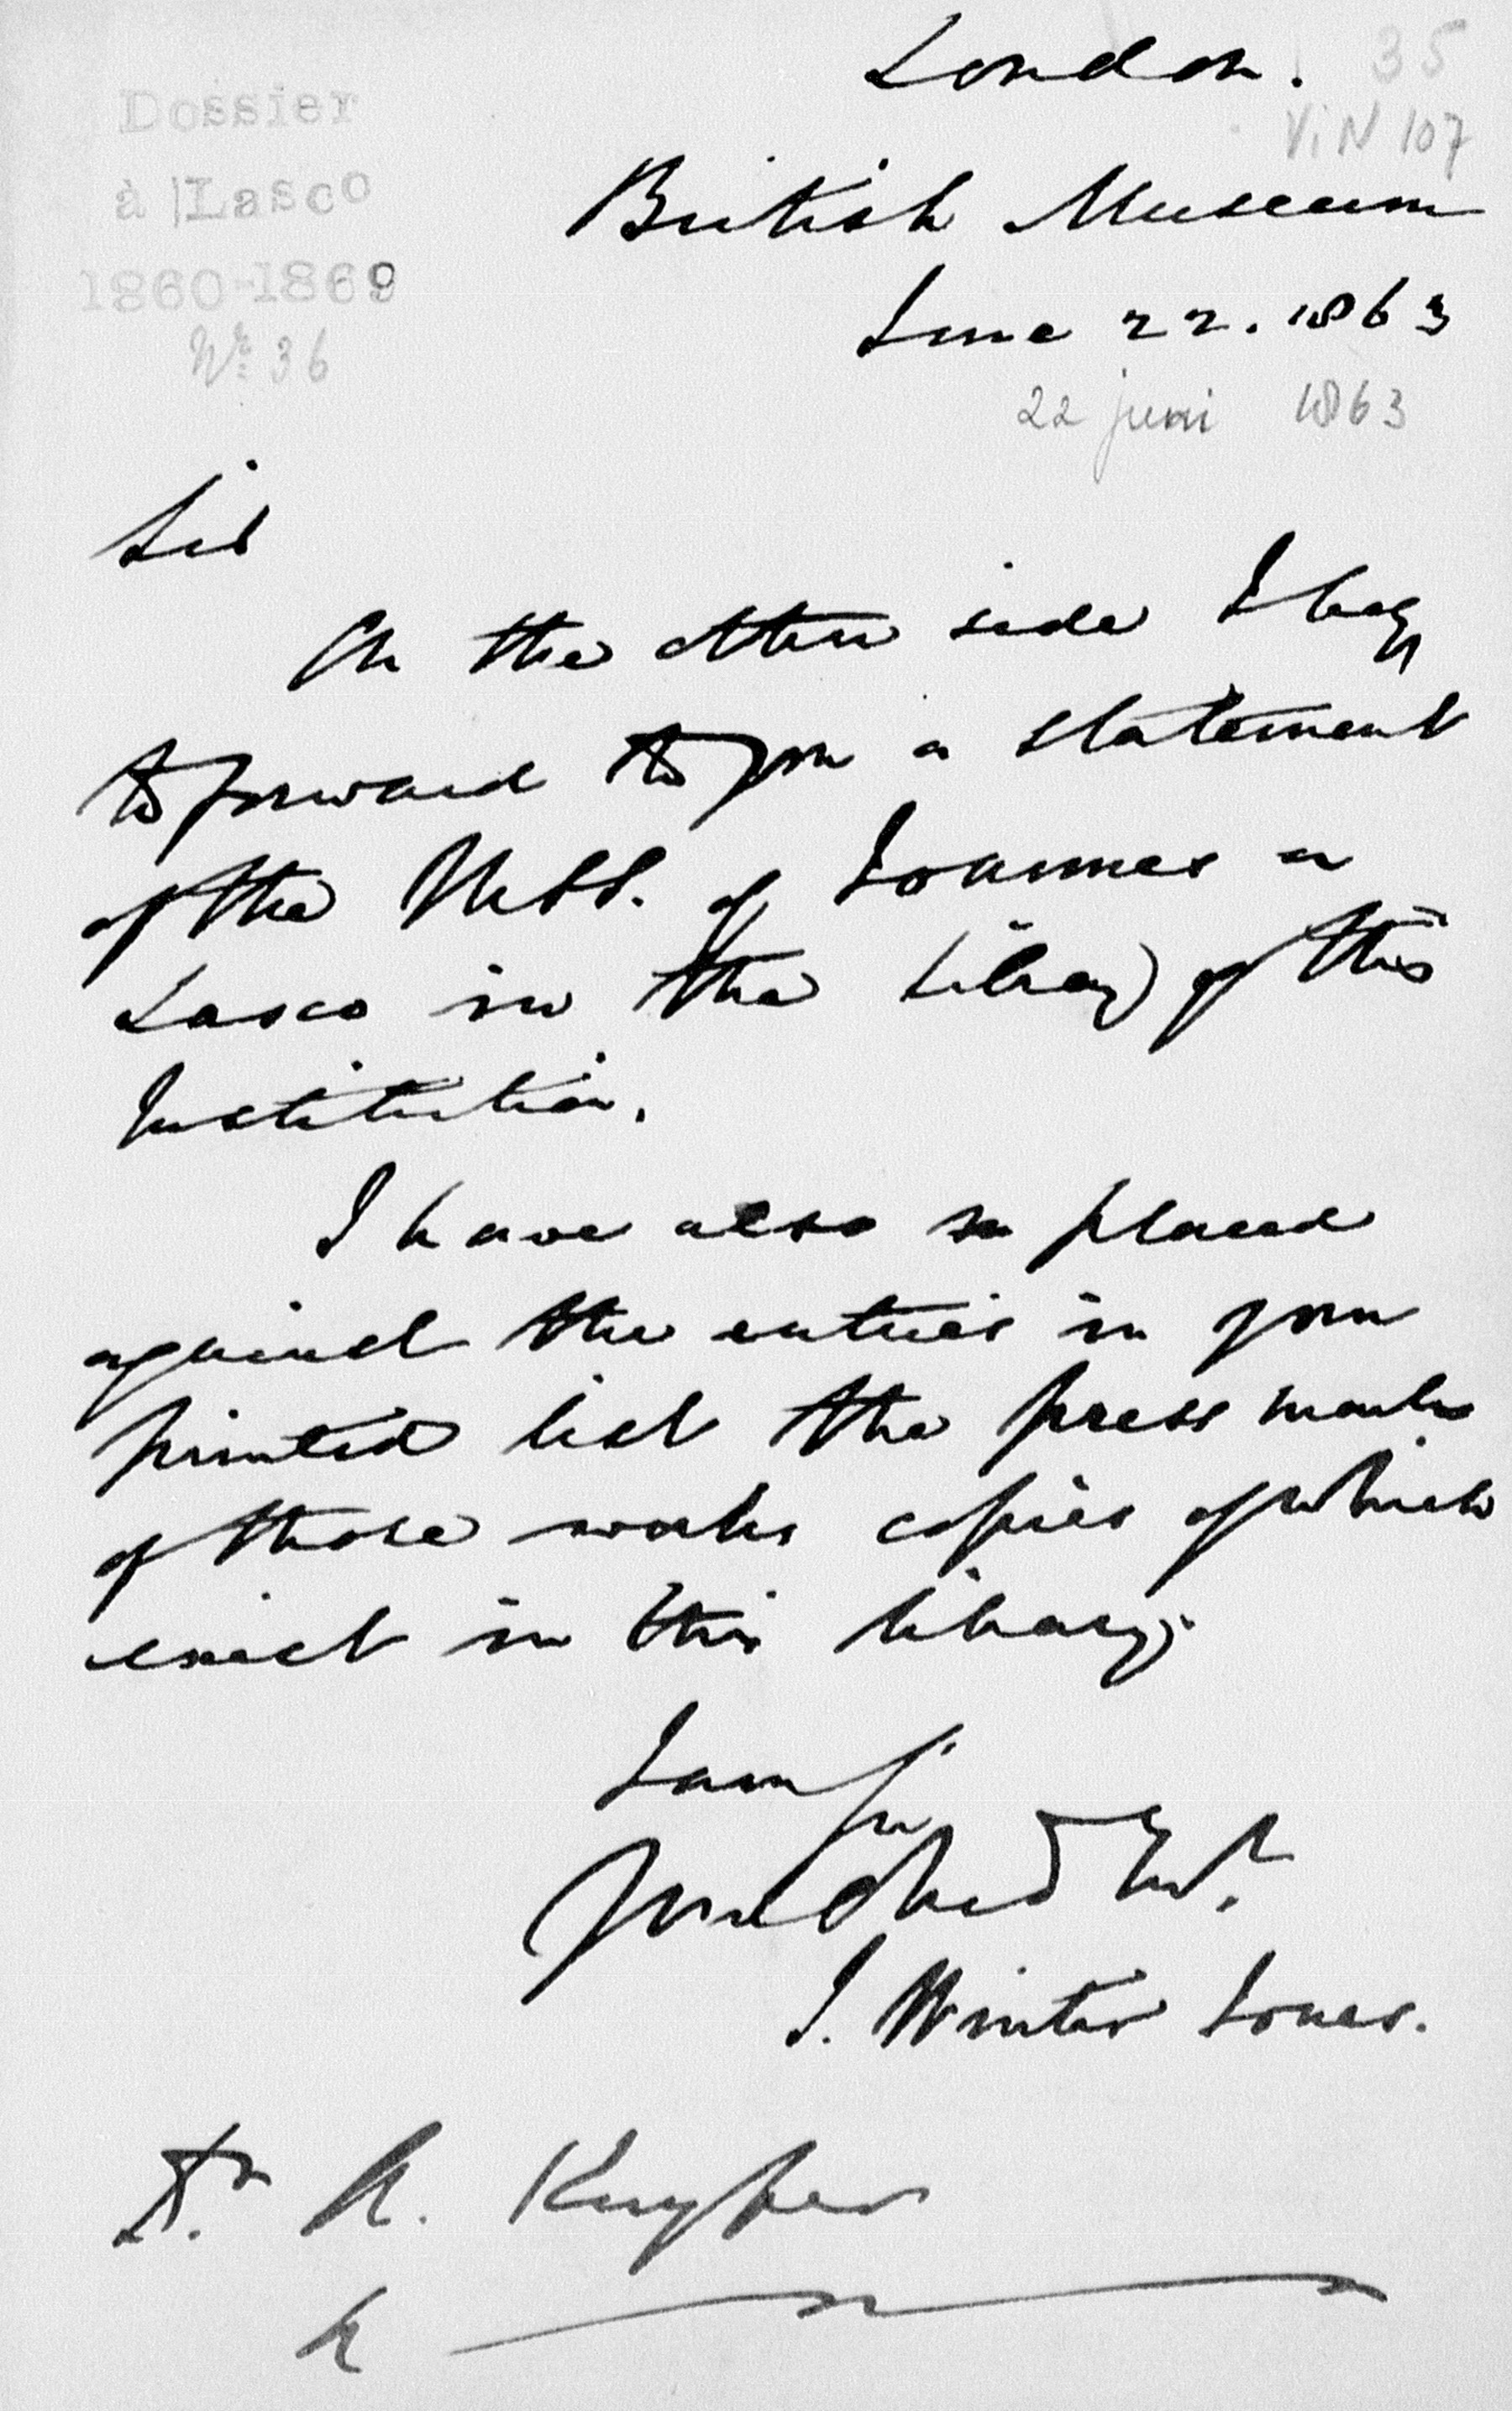 London.
35
ViN 107
Dossier
à Lasco
1860-1869
Nr. 36
British Museum
June 22. 1863
22 juni 1863
Sir
On the other side I beg
to forward to you a statement
of the MSS. of Joannes a
Lasco in the Library of this
Institution.
I have also placed
against the entries in your
printed list the press marks
of those works copies of which
exist in this library.
I am Sir
Your Obed Svt.
J. Winter Jones.
Dr. A. Kuyper